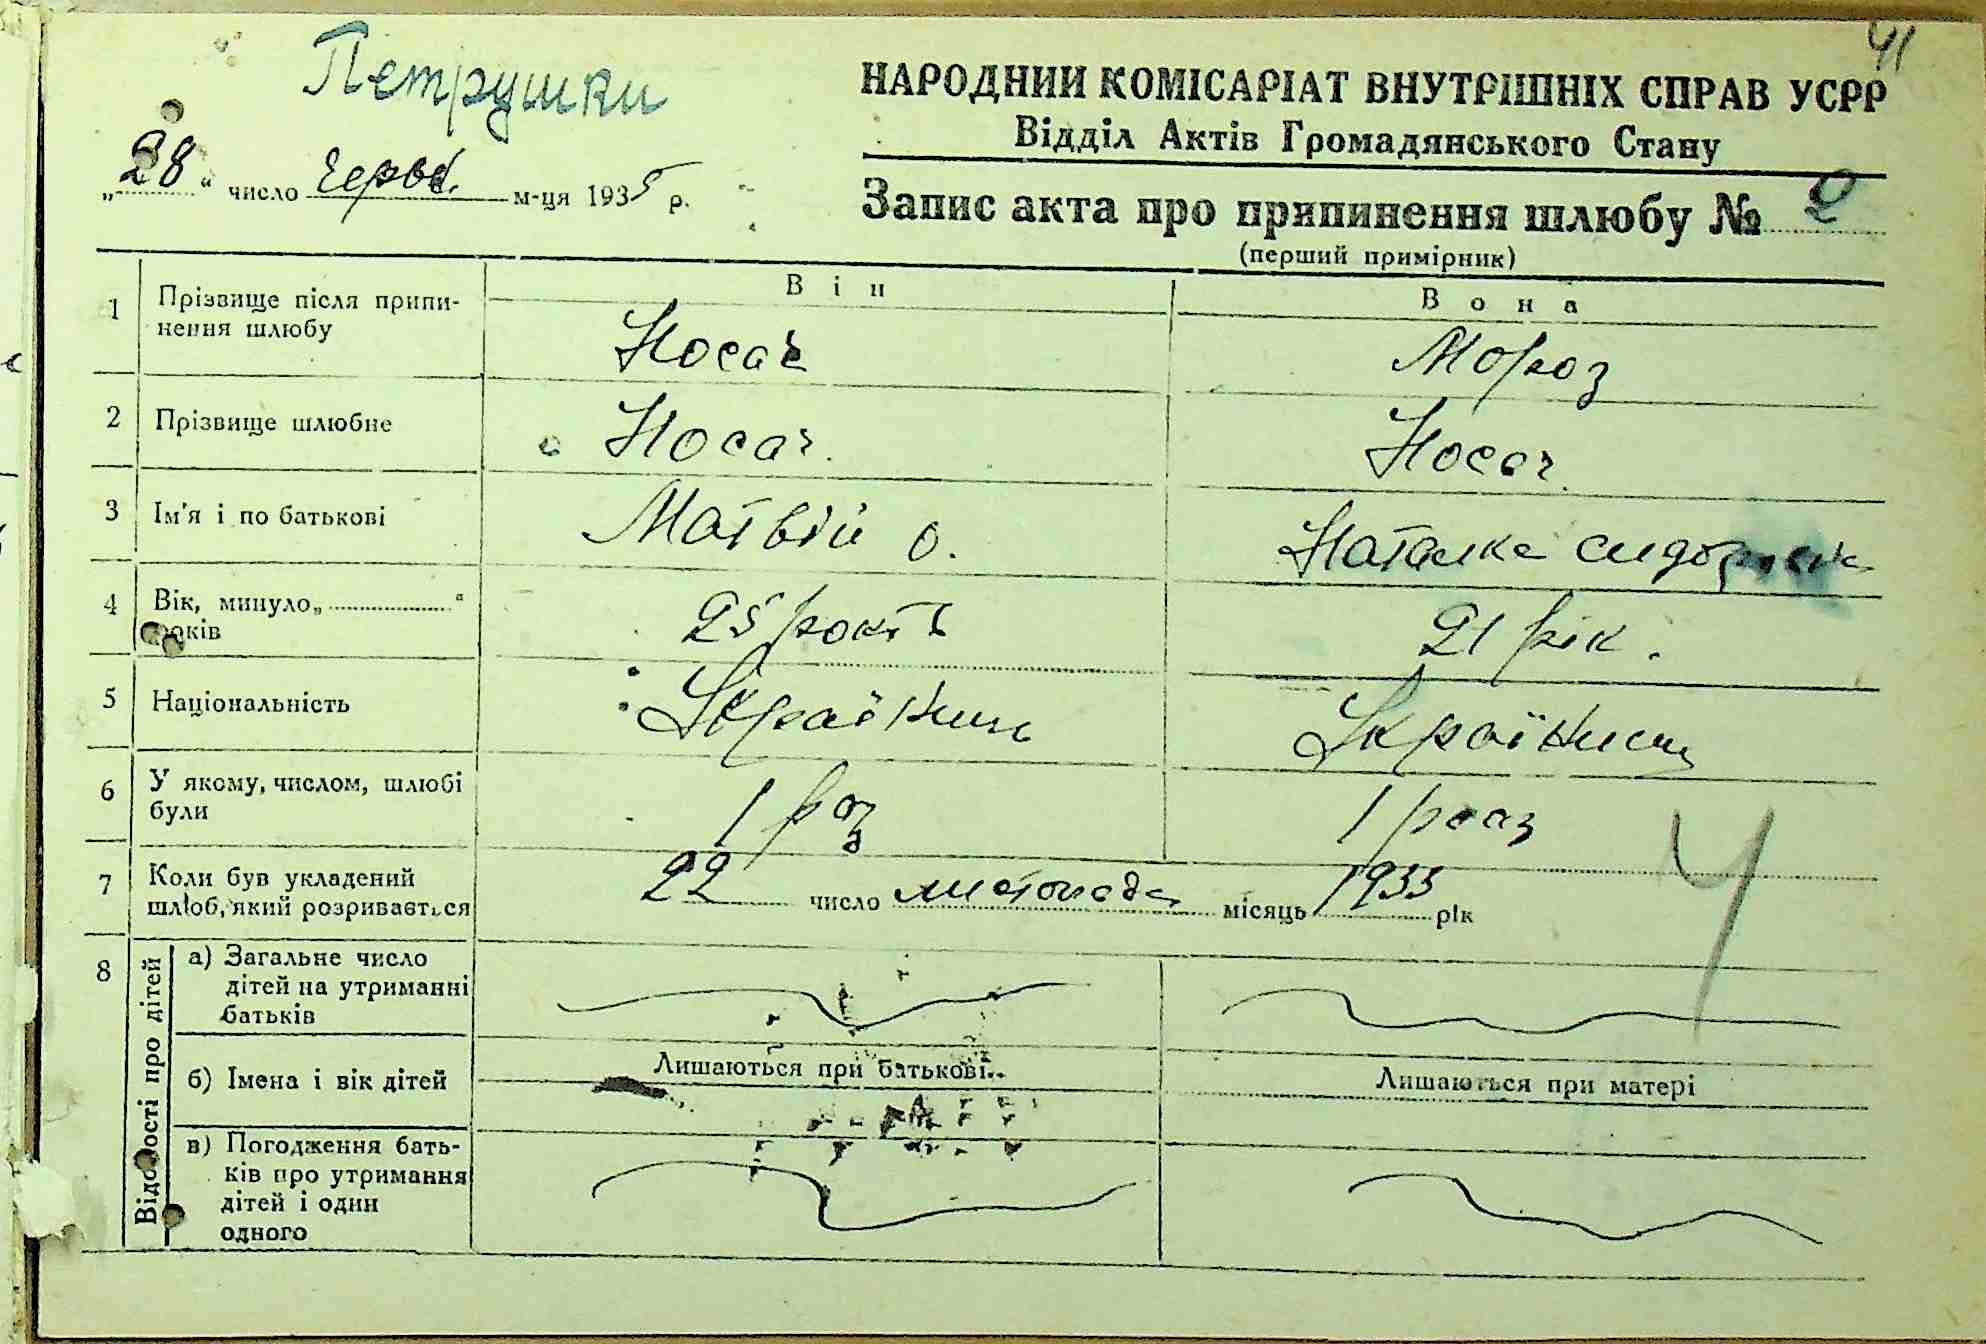 41
Петрушки
НАРОДНИЙ КОМІСАРІАТ ВНУТРІШНІХ СПРАВ УСРР
Відділ Актів Громадянського Стану
„28“ число черв. м-ця 1935 р.
Запис акта про припинення шлюбу № 2
(перший примірник)
Він Вона
1 Прізвище після припи-
нення шлюбу Носач Мороз
2 Прізвище шлюбне Носач. Носач
3 Ім'я і по батькові Матвій О. Наталка Сидор
4 Вік, минуло „ “
років 25 років 21 рік.
5 Національність Українць Українц
6 У якому, числом, шлюбі
були 1 раз 1 раз
7 Коли був укладений
шлюб, який розривається 22 число листопада місяць 1933 рік
8 Відомості про дітей
а) Загальне число
дітей на утриманні
батьків
Лишаються при батькові Лишаються при матері
б) Імена і вік дітей
в) Погодження бать-
ків про утримання
дітей і один
одного